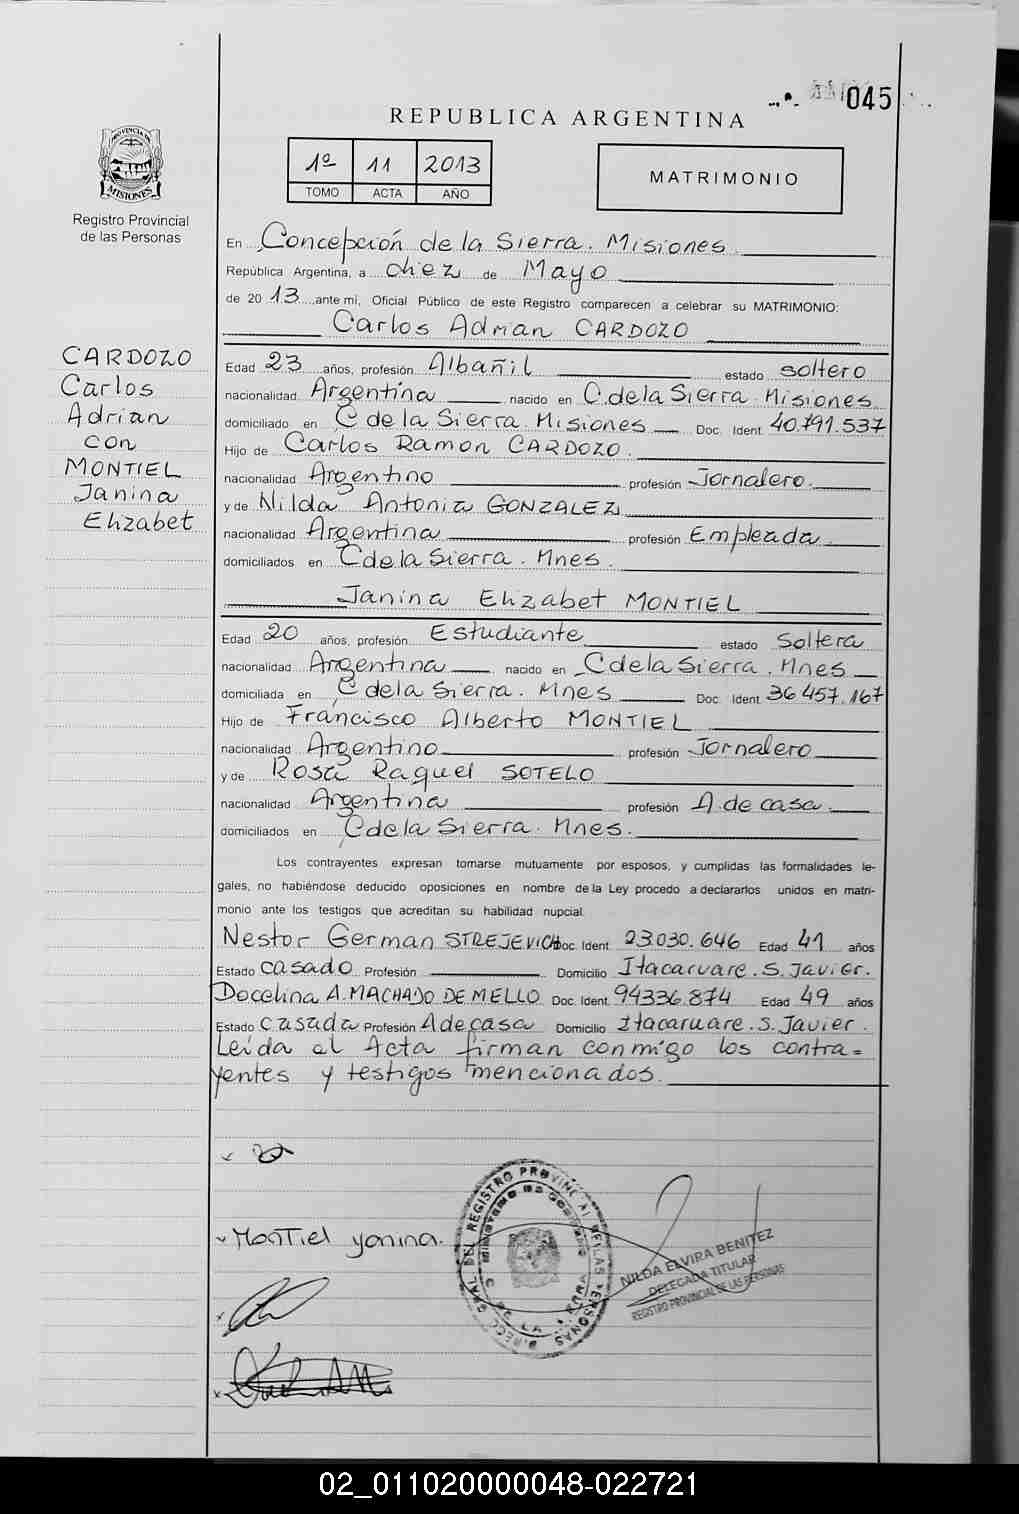 045
REPUBLICA ARGENTINA
1º 11 2013
TOMO ACTA AÑO
MATRIMONIO
PROVINCIA DE
MISIONES
Registro Provincial
de las Personas
En Concepción de la Sierra. Misiones
República Argentina, a diez de Mayo
de 2013, ante mí, Oficial Público de este Registro comparecen a celebrar su MATRIMONIO:
Carlos Adrian CARDOZO
CARDOZO
Carlos
Adrian
con
MONTIEL
Janina
Elizabet
Edad 23 años, profesión Albañil estado soltero
nacionalidad Argentina nacido en C. de la Sierra. Misiones
domiciliado en C de la Sierra. Misiones Doc. Ident. 40.791.537
Hijo de Carlos Ramon CARDOZO.
nacionalidad Argentino profesión Jornalero.
y de Nilda Antonia GONZALEZ
nacionalidad Argentina profesión Empleada.
domiciliados en C de la Sierra. Mnes.
Janina Elizabet MONTIEL
Edad 20 años, profesión Estudiante estado Soltera
nacionalidad Argentina nacido en C de la Sierra. Mnes
domiciliada en C de la Sierra. Mnes Doc. Ident. 36 457.167
Hijo de Francisco Alberto MONTIEL
nacionalidad Argentino profesión Jornalero
y de Rosa Raquel SOTELO
nacionalidad Argentina profesión A. de casa.
domiciliados en C de la Sierra. Mnes.
Los contrayentes expresan tomarse mutuamente por esposos, y cumplidas las formalidades le-
gales, no habiéndose deducido oposiciones en nombre de la Ley procedo a declararlos unidos en matri-
monio ante los testigos que acreditan su habilidad nupcial.
Nestor German STREJEVICH Doc. Ident. 23.030.646 Edad 41 años
Estado casado Profesión Domicilio Itacaruare. S. Javier.
Docelina A. MACHADO DE MELLO Doc. Ident. 94336.874 Edad 49 años
Estado casada Profesión A de casa Domicilio Itacaruare. S. Javier.
Leida el Acta firman conmigo los contra=
yentes y testigos mencionados.
Montiel yanina.
NILDA ELVIRA BENITEZ
DELEGADA TITULAR
REGISTRO PROVINCIAL DE LAS PERSONAS
02_011020000048-022721